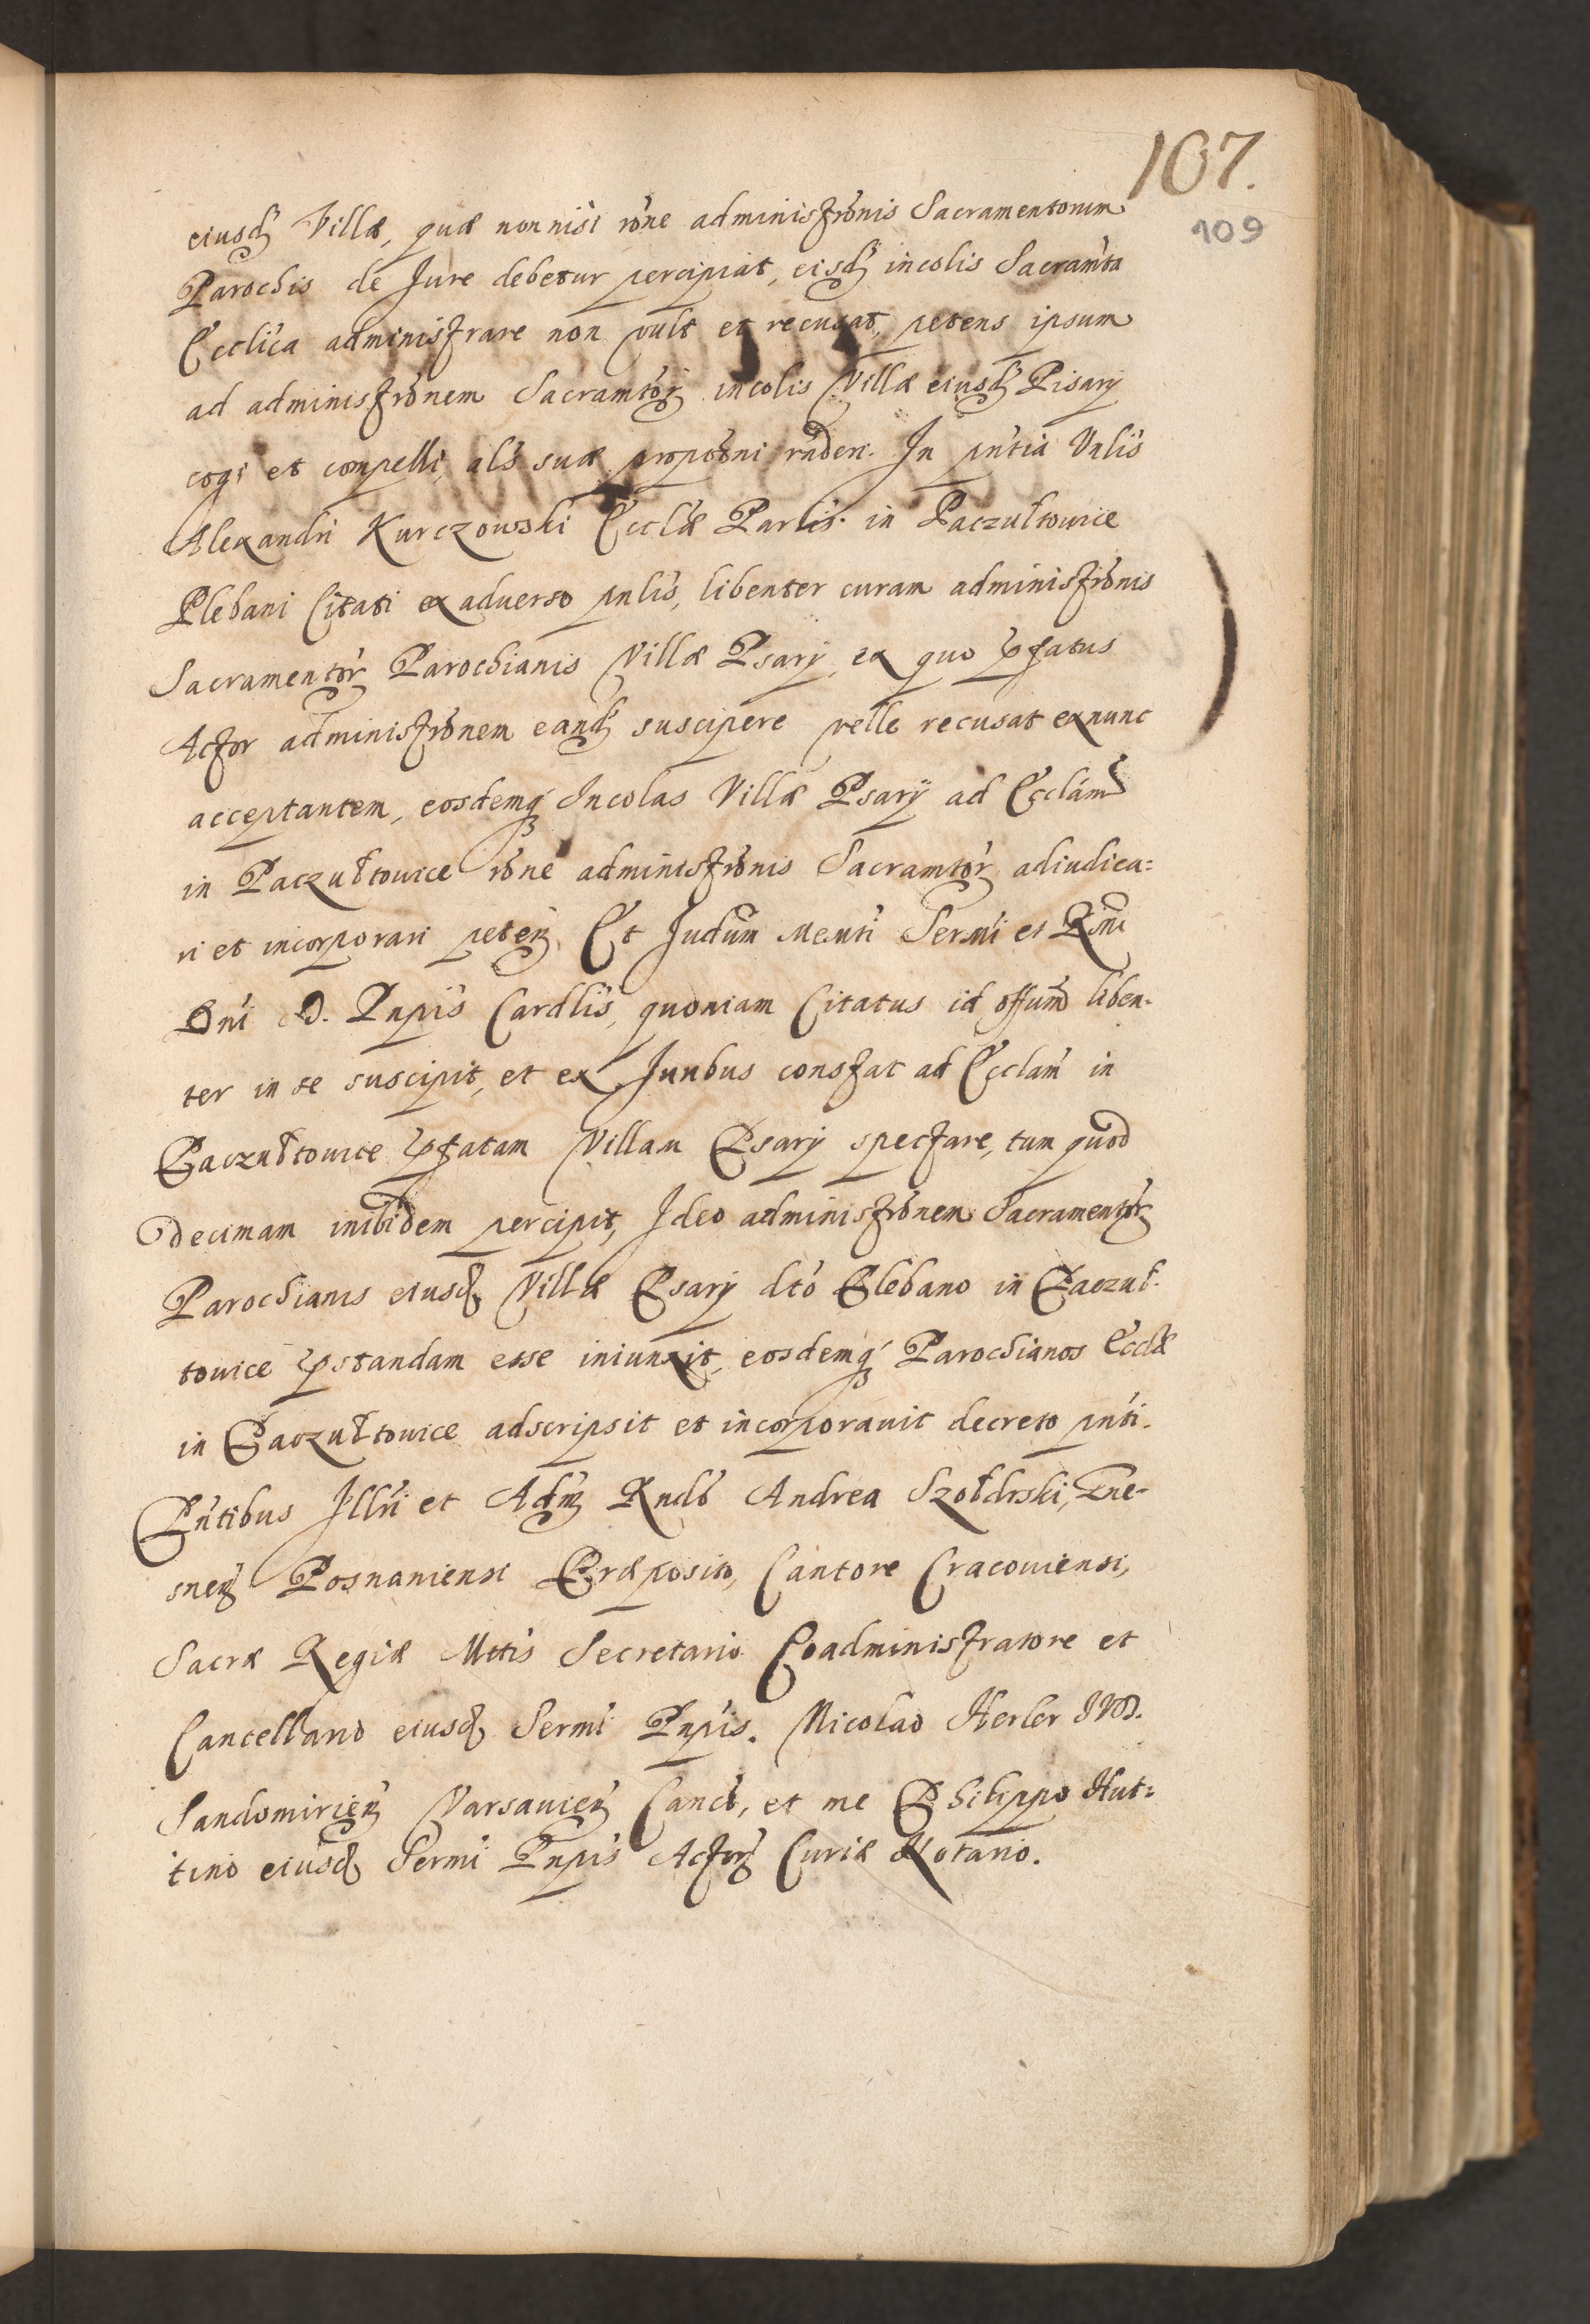 107.
109
eiusd. Villæ, quæ nonnisi rõne administrõnis Sacramentorum
Parochis de Jure debetur percipiat, eisd. incolis Sacramta
Ecclica administrare non vult et recusat, petens ipsum
ad administrõnem Sacramtor. incolis Villæ eiusd. Pisarÿ
cogi et compelli, als suæ propõni rñderi. In pñtia Vnlis
Alexandri Kurczowski Ecclæ Parlis. in Paczułtowice
Plebani Citati ex aduerso pnlis, libenter curam administrõnis
Sacramentor. Parochianis Villæ Psarÿ, ex quo pfatus
Actor administrõnem eand. suscipere velle recusat exnunc
acceptantem, eosdemq. Incolas Villæ Psarÿ ad Ecclam
in Paczułtowice rõne administrõnis Sacramtor. adiudica:
ri et incorporari peten. Et Judũm Sermi et Rmi
Dni D. Pnpis Cardlis, quoniam Citatus id offũm liben-
ter in se suscipit, et ex Juribus constat ad Ecclam in
Paczułtowice pfatam Villam Psarÿ spectare, tum quod
decimam inibidem percipit, Ideo administrõnem Sacramentor.
Parochianis eiusd. Villæ Psarÿ dto Plebano in Paczuł-
towice pstandam esse iniunxit, eosdemq. Parochianos Ecclæ
in Paczułtowice adscripsit et incorporauit decreto pnti.
Pntibus Illri et Adm. Rndo Andrea Szołdrski, Gne-
snen. Posnaniensi Præposito, Cantore Cracouiensi,
Sacræ Regiæ Mttis Secretario Coadministratore et
Cancellario eiusd. Sermi Pnpis. Nicolao Herler JVD.
Sandomirien. Varsauien. Canco, et me Philippo Hut:
tino eiusd. Sermi Pnpis Actor. Curiæ Notario.